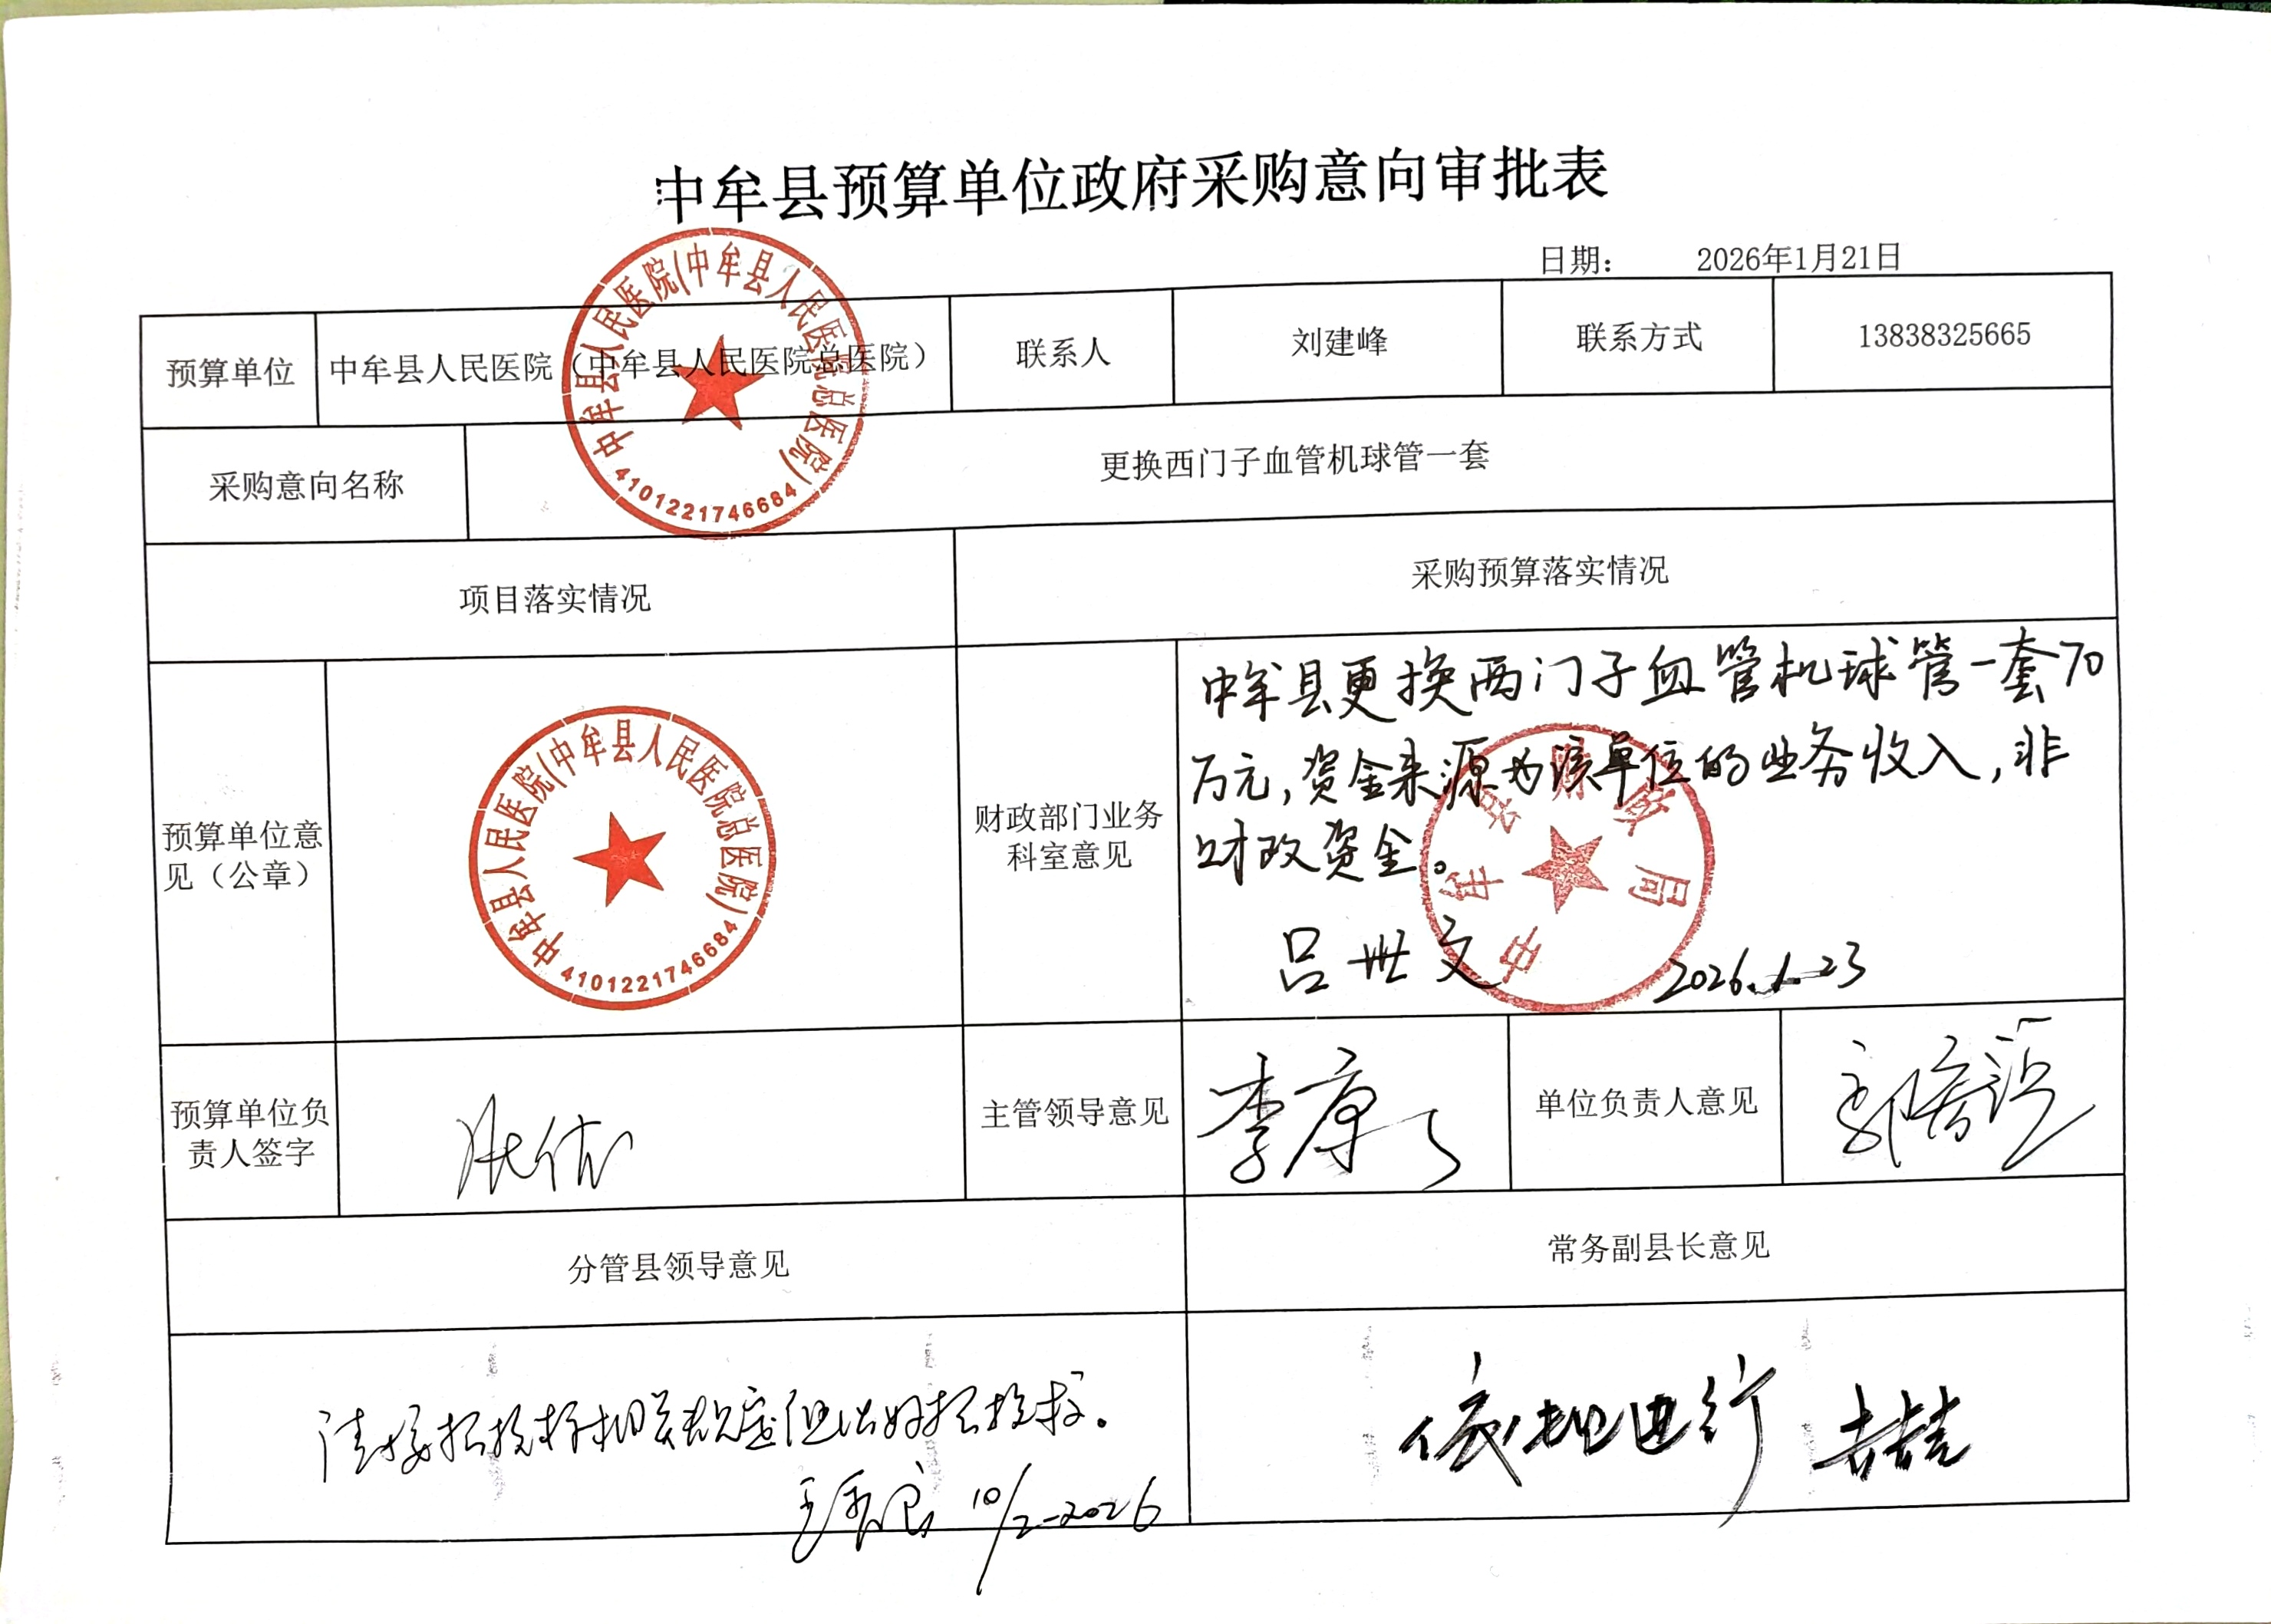 中牟县预算单位政府采购意向审批表
日期： 2026年1月21日
预算单位 中牟县人民医院（中牟县人民医院总医院） 联系人 刘建峰 联系方式 13838325665
中牟县人民医院(中牟县人民医院总医院)
4101221746684
采购意向名称 更换西门子血管机球管一套
项目落实情况 采购预算落实情况
预算单位意
见（公章）
中牟县人民医院(中牟县人民医院总医院)
4101221746684
财政部门业务
科室意见
中牟县更换西门子血管机球管一套70
万元，资金来源为该单位的业务收入，非
财政资金。
吕世文 2026.1.23
中牟县财政局
预算单位负
责人签字
主管领导意见 李康 单位负责人意见
分管县领导意见 常务副县长意见
请按招投标相关规定
10/2-2026
依规进行